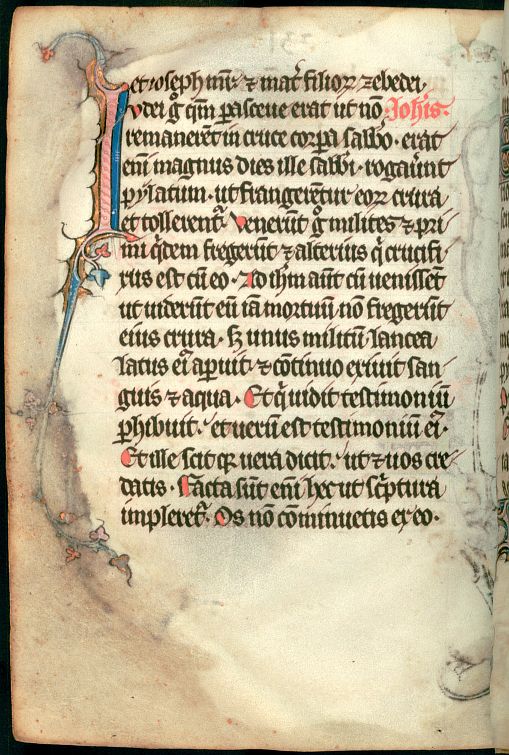 et ioseph mr̄. ⁊ mat̄ filioꝝ zebedei.
Iudei g̊ qm̄ ꝑasceue erat ut nō Ioh̄is.
remanerēt in cruce corꝑa sabb̄o. erat
enī magnus dies ille sabb̄i. rogauer̄unt
pylatum. ut frangerētur eoꝝ crura
et tollerent᷑. Venerūt g̊ milites ⁊ pri
mi qͥdem fregerūt ⁊ alterius qͥ crucifi
xus est cū eo. Ad ih̄m aūt cū uenissēt
ut uiderūt eū iā mortuū nō fregerūt
eius crura. Sꝫ unus militū lancea
latus eiꝰ apuit. ⁊ cōtinuo exiuit san
guis ⁊ aqua. Et qͥ uidit testimoniū
ꝑhibuit. et uerū est testimoniū eiꝰ.
Et ille scit qꝛ uera dicit. ut ⁊ uos cre
datis. Facta sūt enī hec ut sc̄ptura
impleret᷑. Os nō cōminuetis ex eo.